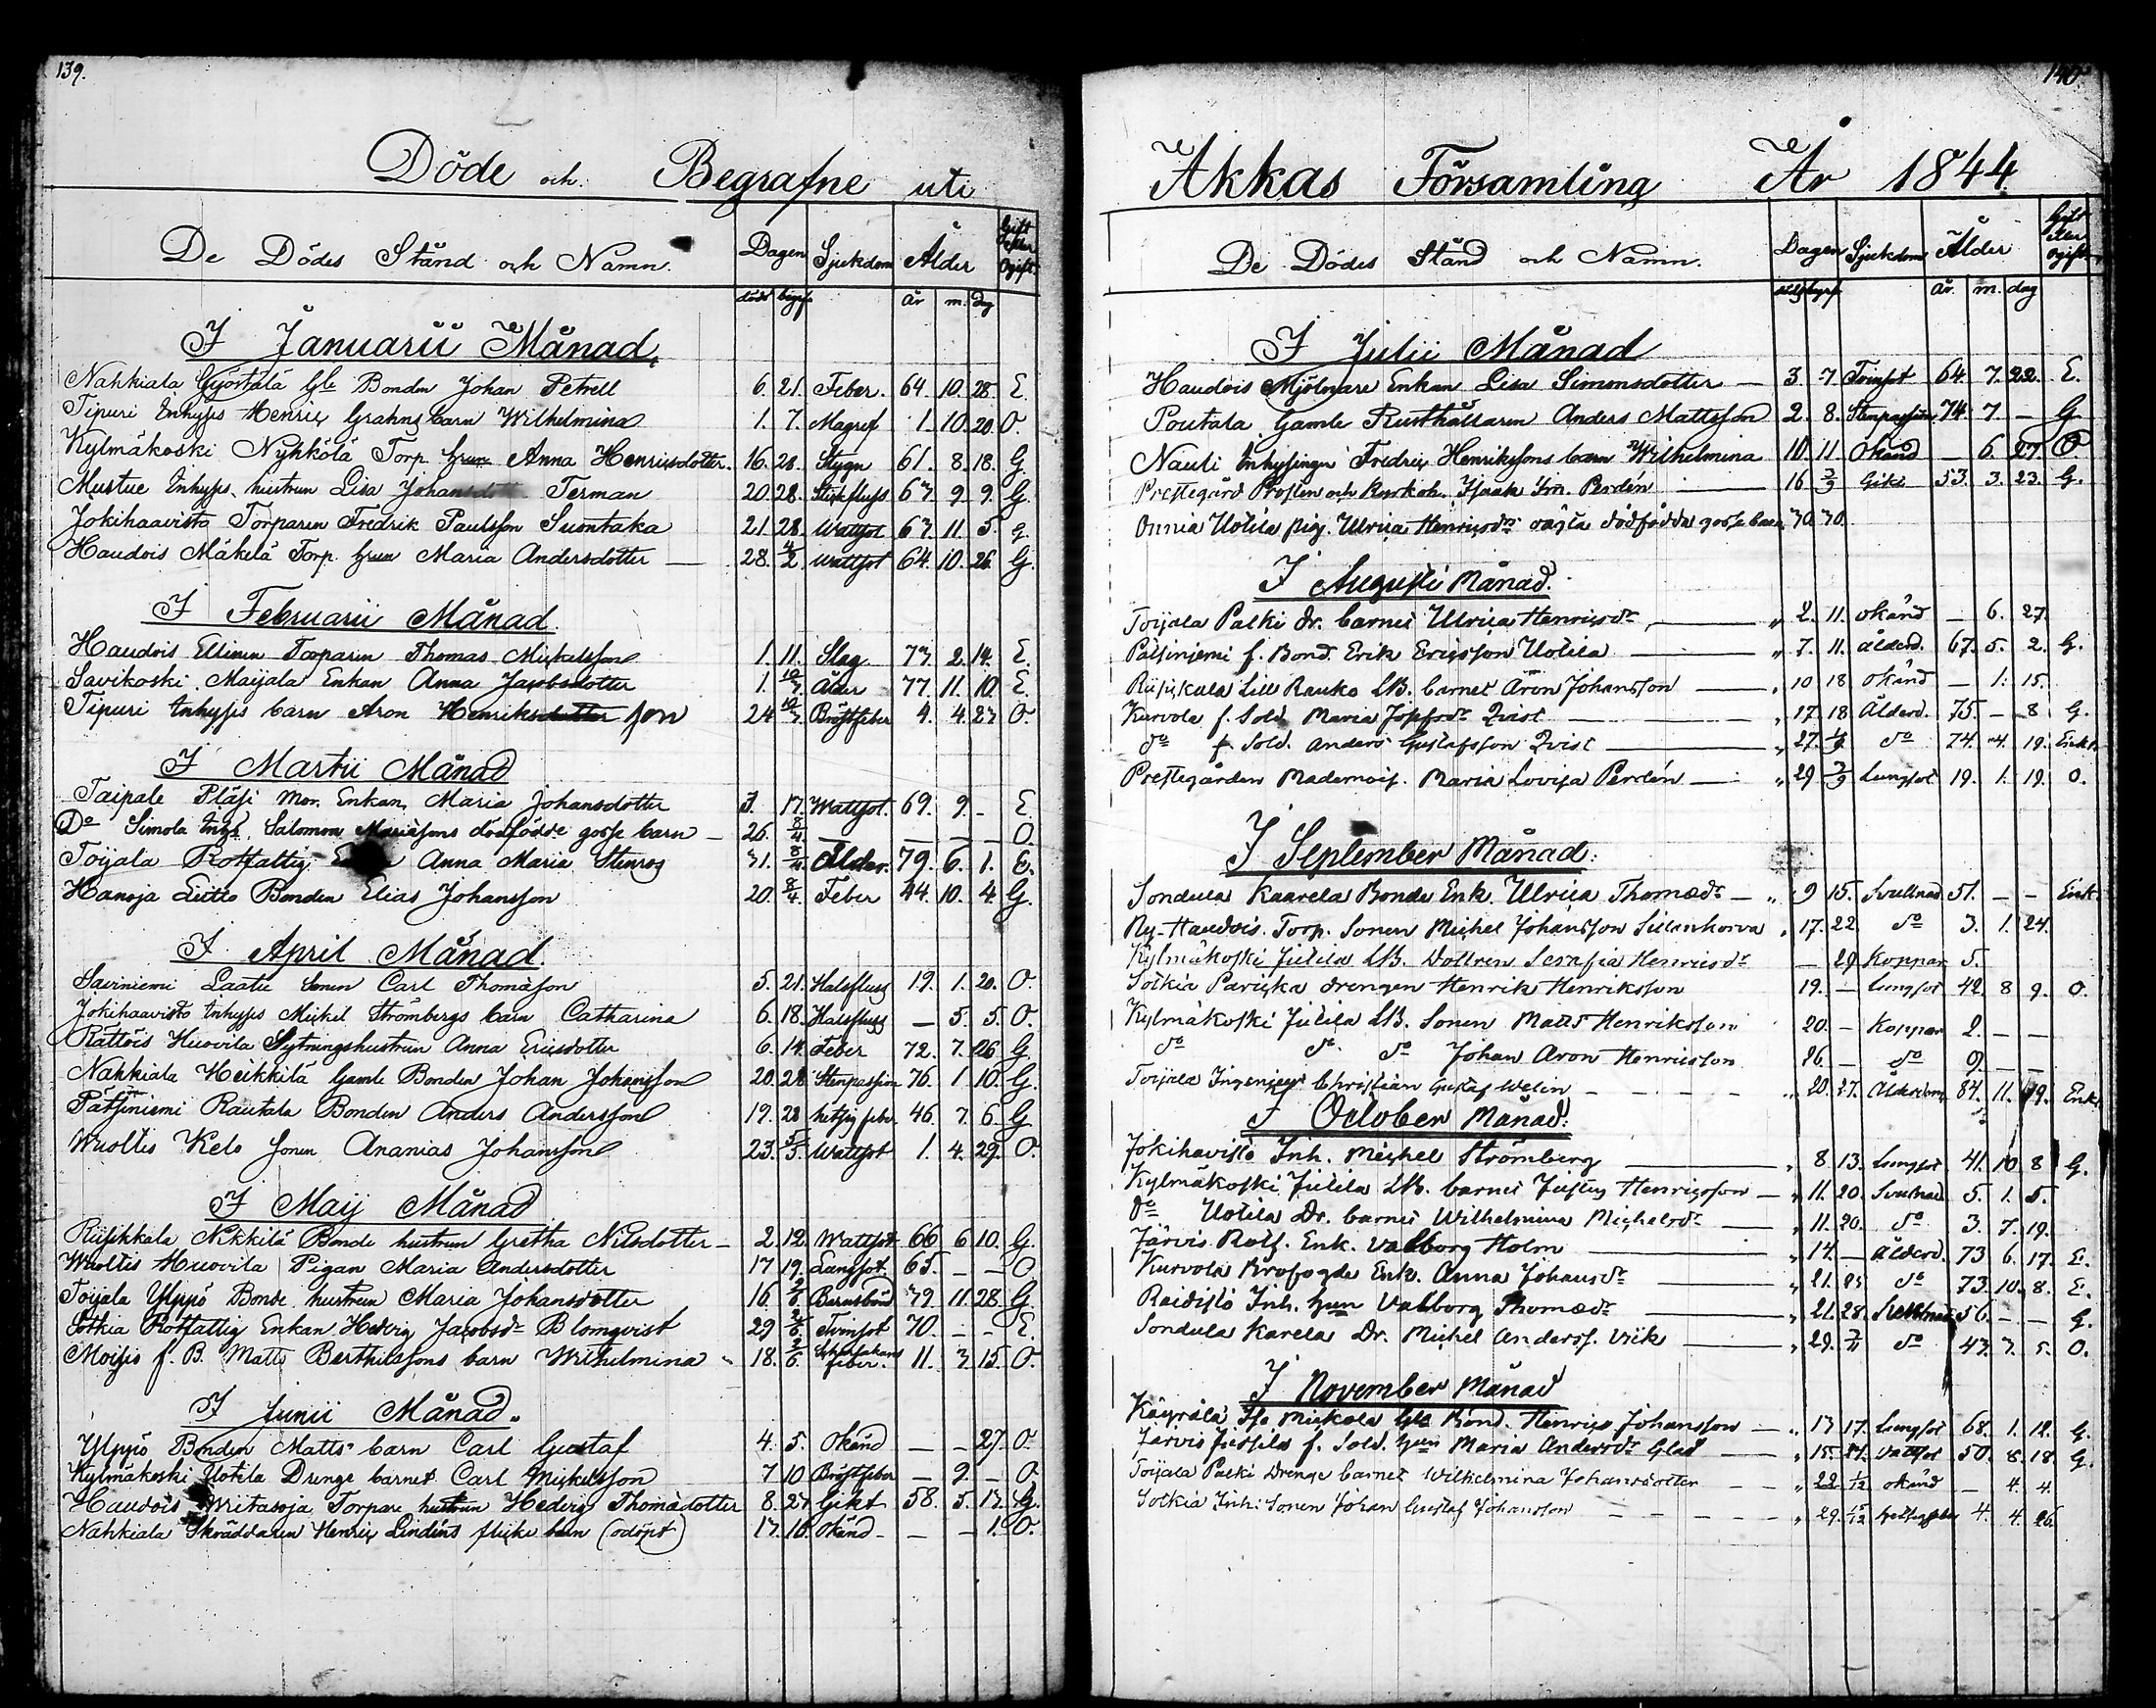 139.
Döde och Begrafne uti
De Dödes Stånd och Namn. Dagen Sjukdom Ålder Gift eller Ogift
död begrf år m. dag
I Januarii Månad
Nahkiala Gle Bonden Johan Petrell 6. 21. Feber. 64. 10. 28. E.
Tipuri Inhyses Henric Grahns barn Wilhelmina 1. 7. Magref 1. 10. 20. O.
Kylmäkoski Nyhkölä Torp. hun Anna Henricsdotter. 16. 28. Stygn 61. 8. 18. G.
Mustue Inhyses hustrun Lisa Johansdott Terman 20. 28. 67. 9. 9. G.
Jokihaavisto Torparen Fredrik Paulsson Suontaka 21 28. Wattsot 67. 11. 5. G.
Haudois Mäkelä Torp. hun Maria Andersdotter 28. 4/2 Wattsot 64. 10. 26. G.
I Februarii Månad
Haudois Ellinen Torparen Thomas Mickelsson 1. 11. Slag 73. 2. 14. E.
Savikoski Maijala Enkan Anna Jacobsdotter 1. Ålder 77. 11. 10. E.
Tipuri Inhyses barn Aron Henriksdotter son 24 Bröstfeber 4. 4. 27 O.
I Martii Månad
Taipale Mor. Enkan Maria Johansdotter 3. 17. Wattsot. 69. 9. - E.
Do Simola Inhs. Salomon dödfödde gosse barn 26. 8/4 — — — O.
Toijala Rotfattig Anna Maria Stenros 31. 8/4. Ålder. 79. 6. 1. E.
Hanoja Eutto Bonden Elias Johansson 20. 8/4. Feber 44. 10. 4. G.
I April Månad.
Saviniemi Laatu Sonen Carl Thomasson 5. 21. Halsfluss 19. 1. 20. O.
Jokihaavisto Inhyses Mickel Strömbergs barn Catharina 6. 18. Halsfluss — 5. 5. O.
Rättöis Huovila Sytningshustrun Anna Ericsdotter 6. 14. Feber 72. 7. 26 G.
Nahkiala Heikkilä Gamle Bonden Johan Johansson 20. 28 Stenpassion 76. 1 10. G.
Pätsiniemi Rautala Bonden Anders Andersson 19. 28 hetsig feber 46. 7 6. G
Wuoltis Kelo Sonen Ananias Johansson 23. 5/5. Wattsot 1. 4. 29. O.
I Maij Månad
Riisikkala Nikkilä Bonde hustrun Gretha Nilsdotter 2. 12. Wattsot 66 6 10. G.
Wuoltis Huovila Pigan Maria Andersdotter 17 19. Lungsot 65. — — O
Toijala Yлppö Bonde hustrun Maria Johansdotter 16. 2/6 Barnsbörd 39. 11. 28. G.
Sotkia Rotfattig Enkan Hedvig Jacobsdr Blomqvist 29 2/6. Tvinsot 70. — — E.
Moisio f. B. Matts Berthilssons barn Wilhelmina 18. 2/6. Scharlakans feber. 11. 3 15. O.
I Junii Månad.
Ylppö Bonden Matts barn Carl Gustaf 4. 5. Okänd — — 27. O.
Kylmäkoski Uotila Drenge barnet Carl Mickelsson 7 10 Bröstfeber — 9. — O.
Haudois Wiitasoja Torpare hustrun Hedvig Thomädotter 8. 27. Gikt 58. 5. 17. G.
Nahkiala Skräddaren Henric Lindéns flicke barn (odöpt) 17. 18. Okänd — — 1. O.
140.
Akkas Församling År 1844
De Dödes Stånd och Namn. Dagen Sjukdom Ålder Gift eller ogift
begrf år. m. dag
I Julii Månad
Haudois Mjölnare Enkan Lisa Simonsdotter — 3. 7 Tvinsot 64. 7. 22. E.
Poutala Gamle Rusthållaren Anders Mattsson 2. 8. Stenpassion 74. 7. — G
Nauli Inhysingen Fredric Henrikssons barn Wilhelmina 10. 11. Okänd — 6. 27 O
Prestegård Prosten och Kyrkoh. Isaak Im. Perdén 16 3/9 Gikt 53. 3. 23. G.
Onnia Uotila pig. Ulrica Henricsdrs oägta dödfödda gosse barn 30. 30.
I Augusti Månad.
Toijala Palki dr. barnet Ulrica Henricsdr — " 2. 11. okänd — 6. 27.
Pätsiniemi f. Bond. Erik Ericsson Uotila — " 7. 11. ålderd. 67. 5. 2. G.
Riisickala Lill Rauko LB. barnet Aron Johansson — " 10 18 okänd — 1. 15.
Kurvola f. Sold. Maria Qvist — " 17 18 Ålderd. 75. — 8 G.
do f. Sold. Anders Gustafsson Qvist — " 27. 1/9 do 74. 4. 19. Enkl.
Prestegården Mademois. Maria Lovisa Perdén — " 29 3/9 Lungsot 19. 1. 19. O.
I September Månad:
Sondula Kaarela Bonde Enk. Ulrica Thomædr — " 9 15. Svullnad 51. — — Enk.
Ny-Haudois. Torp. Sonen Michel Johansson Sillankorva " 17. 22 do 3. 1. 24.
Kylmäkoski Julila LB. Dottren Serafia Henricsdr — 29 Koppor 5.
Sotkia Paricka drengen Henrik Henriksson 19. — Lungsot 42. 8 9. O.
Kylmäkoski Julila LB. Sonen Matts Henriksson 20. — Koppor 2. — —
do do do Johan Aron Henricsson 26. — do 9. — —
Toijala Ingenjeur Christian Gustaf Welin — " 20. 27. Ålderdom 84. 11. 19. Enkl.
I October Månad:
Jokihavisto Inh. Michel Strömberg — " 8. 13. Lungsot 41. 10 8 G.
Kylmäkoski Julila LB. barnet Justus Henricsson — " 11. 20. Svullnad 5. 1. 5.
do Uotila Dr. barnet Wilhelmina Michelsdr — " 11. 20. do 3. 7. 19.
Järvis Rotf. Enk. Valborg Holm — " 14. — Ålderd. 73 6. 17. E.
Kurvola Profogde Enk. Anna Johansdr — " 21. 25 do 73. 10. 8. E.
Roidisto Inh. hun Valborg Thomædr — " 21. 28. 56. — — G.
Sondula Karela Dr. Michel Anderss. Viik — " 29. 3/11 do 43. 7. 5. O.
I November Månad
Käyrälä Iso Mickola Gle Bond. Henric Johansson — " 13 17. Lungsot 68. 1. 12. G.
Järvis Jussila f. Sold. hun Maria Andersdr Glad — " 15. 24. Vattsot 50. 8. 18. G.
Toijala Palki Drenge barnet Wilhelmina Johansdotter — " 22. 1/12 okänd — 4. 4.
Sotkia Inh: Sonen Johan Gustaf Johansson — " 29. 15/12 hetsigfeber 4. 4. 26.